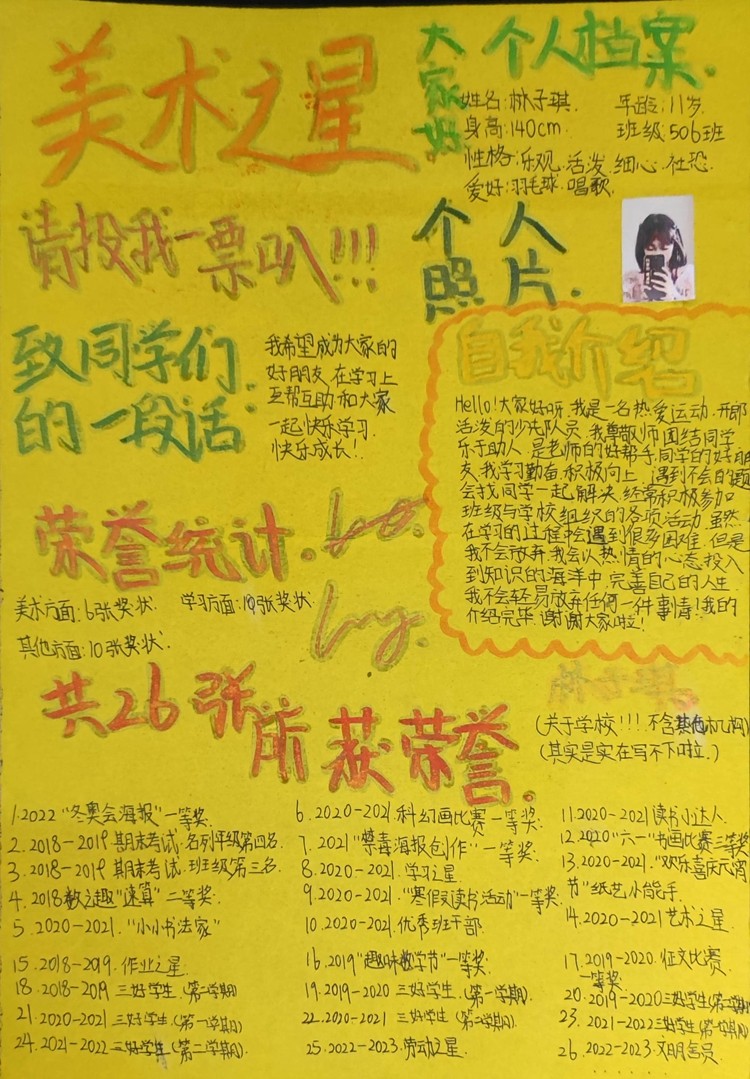 美术之星
大家好
个人档案.
姓名:林子琪. 年龄:11岁.
身高:140cm. 班级:506班
性格:乐观.活泼.细心.社恐.
爱好:羽毛球.唱歌.
请投我一票叭!!!
个人
照片.
致同学们
的一段话:
我希望成为大家的
好朋友,在学习上
互帮互助和大家
一起快乐学习.
快乐成长!
自我介绍
Hello!大家好呀.我是一名热爱运动.开郎
活泼的少先队员.我尊敬师.团结同学.
乐于助人.是老师的好帮手,同学的好朋
友.我学习勤奋.积极向上.遇到不会的题
会找同学一起解决.经常积极参加
班级与学校组织的各项活动.虽然
在学习的过程中会遇到很多困难.但是
我不会放弃.我会以热情的心态投入
到知识的海洋中.完善自己的人生.
我不会轻易放弃任何一件事情!我的
介绍完毕.谢谢大家啦!
荣誉统计.
by.
美术方面:6张奖状. 学习方面:10张奖状.
其他方面:10张奖状.
林子琪.
共26张
所获荣誉.
(关于学校!!!不含其他机构)
(其实是实在写不下啦.)
1.2022“冬奥会海报”一等奖.
2.2018-2019期末考试.名列年级第四名.
3.2018-2019期末考试.班级第三名.
4.2018数之趣“速算”二等奖.
5.2020-2021.“小小书法家”
6.2020-2021.科幻画比赛一等奖.
7.2021“禁毒海报创作”一等奖.
8.2020-2021.学习之星.
9.2020-2021.“寒假读书活动”一等奖.
10.2020-2021.优秀班干部.
11.2020-2021读书小达人.
12.2020“六一”书画比赛三等奖
13.2020-2021.“欢乐喜庆元宵
节”纸艺小能手.
14.2020-2021艺术之星.
15.2018-2019.作业之星. 16.2019“趣味数学节”一等奖. 17.2019-2020.征文比赛.
一等奖.
18.2018-2019三好学生.(第二学期) 19.2019-2020三好学生.(第一学期). 20.2019-2020三好学生(第一学期)
21.2020-2021三好学生.(第一学期) 22.2020-2021三好学生(第二学期). 23.2021-2022三好学生(第一学期)
24.2021-2022三好学生(第二学期). 25.2022-2023.劳动之星. 26.2022-2023.文明舍员.
......